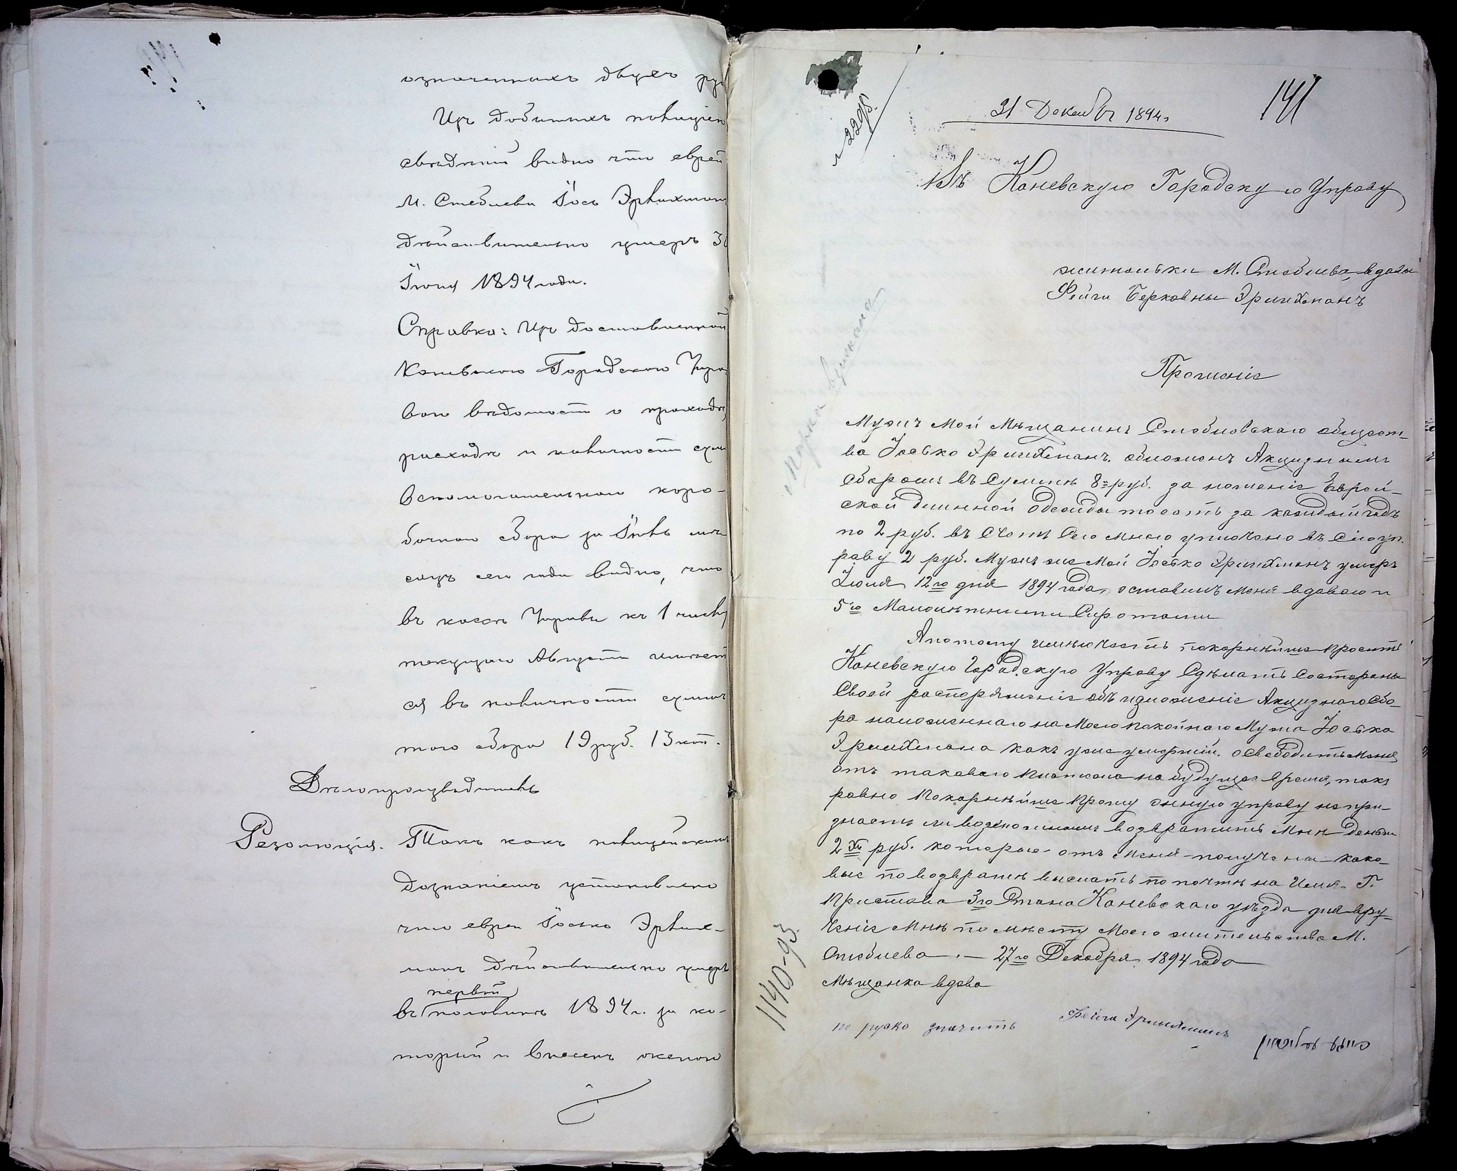 означенныхъ двухъ руб
Изъ добытыхъ полицiею
свѣденiй видно что еврей
м. Стеблева Iось Эрлихман
дѣйствительно умеръ 30
Iюня 1894 года.
Справка: Изъ доставленной
Каневскою Городскою Упра-
вою вѣдомости о приходѣ,
расходѣ и наличности сумъ
вспомогательнаго коро-
бочнаго сбора за Iюль мѣ-
сяцъ сего года видно, что
въ кассѣ Управы къ 1 числу
текущаго Августа имѣет
ся въ наличности сумъ
того сбора 19 руб. 13 коп.
Дѣлопроизводитель
Резолюцiя. Такъ какъ полицейскимъ
дознанiемъ установлено
что еврей Iосько Эрлих-
манъ дѣйствительно умеръ
первой
въ половинѣ 1894 г. за ко-
торый и внесенъ окладъ
141
№ 2298.
31 Декабр 1894 г.
Въ Каневскую Городскую Управу
жительки м. Стеблева, вдовы
Фейги Берковны Эрлихманъ
Прошенiе
Мужъ мой Мѣщанинъ Стеблевскаго общест-
ва Iосько Эрлихманъ. обложенъ Акцизнымъ
сборомъ въ Суммѣ 8 руб. за ношенiе Еврей-
ской длинной одежды тоесть за каждый годъ
по 2 руб. въ Счетъ сего мною уплочено въ Сiю уп-
раву 2 руб. Мужъ же мой Iосько Эрлихманъ умеръ
Iюля 12го дня 1894 года, оставивъ меня вдовою и
5ю Малолѣтними Сиротами
А потому имѣю честь покорнѣйше просить
Каневскую Городскую Управу Сдѣлать Состороны
Своей распоряженiе объ изложенiе Акцизнаго Сбо-
ра наложеннаго на Моего покойнаго Мужа Iосько
Эрлихмана какъ уже умершiй. освободить меня
отъ таковаго платежа на будущее время, такъ
равно покорнѣйше прошу онную управу непри-
знаетъ ли возможнымъ возвратить Мнѣ деньги
2 хъ руб. которые отъ меня получены како-
вые по возвратѣ выслать по почтѣ на Имя Г.
Пристава 3го Стана Каневскаго уѣзда для вру-
ченiе Мнѣ по мѣсту Моего жительства М.
Стеблева. — 27го Декабря 1894 года
Мѣщанка вдова
по руско значитъ Фейга Эрлихманъ
1140-93